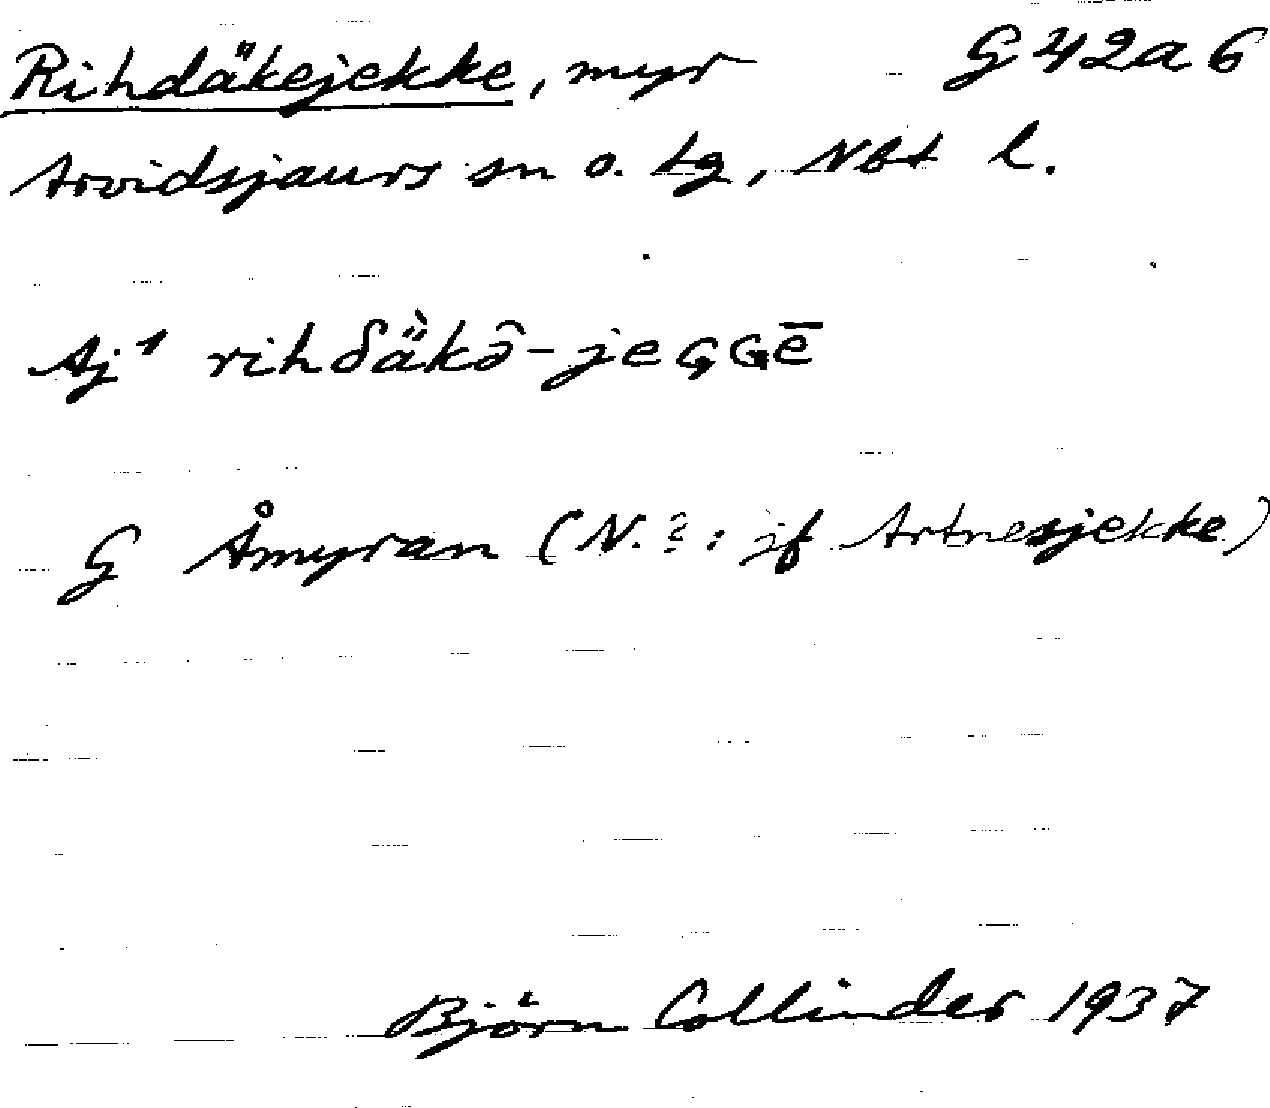 Rihdäkejekke, myr G 42a6
Arvidsjaurs sn o. tg, Nbt l.
Aj¹ rihδä̀kə̑-jeɢ̨ɢē
G Åmyran (N.?: jf Artnesjekke)
Björn Collinder 1937